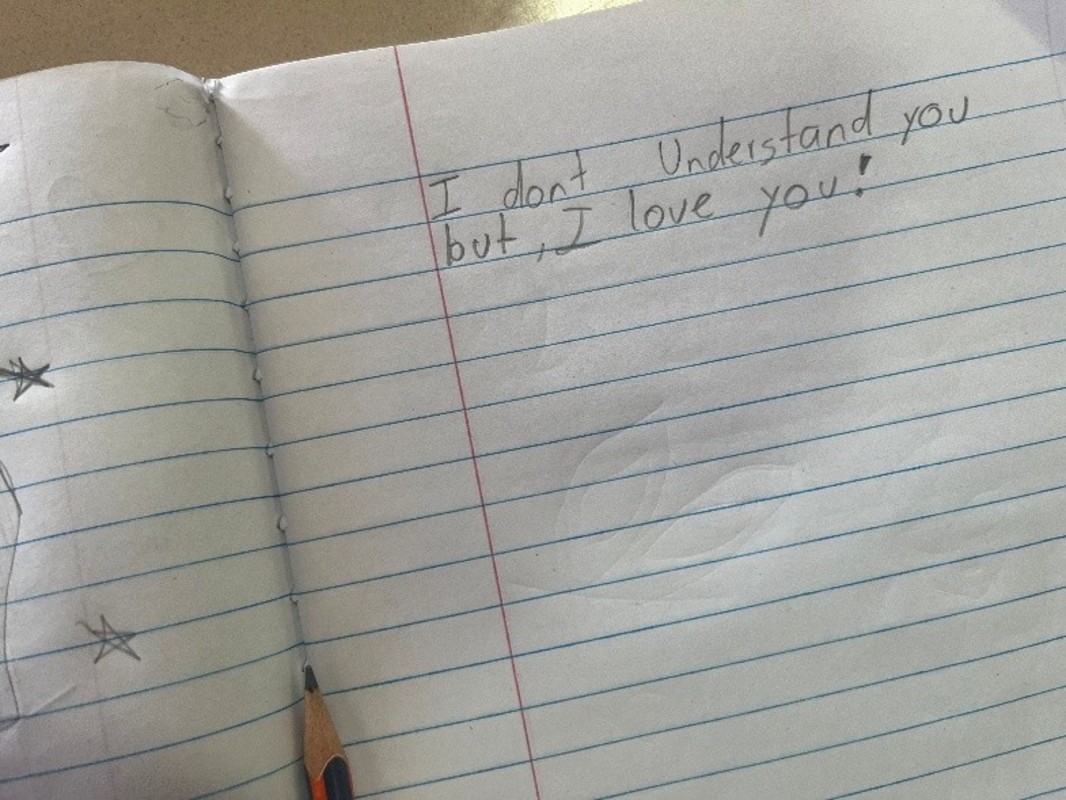 I dont Understand you
but, I love you!